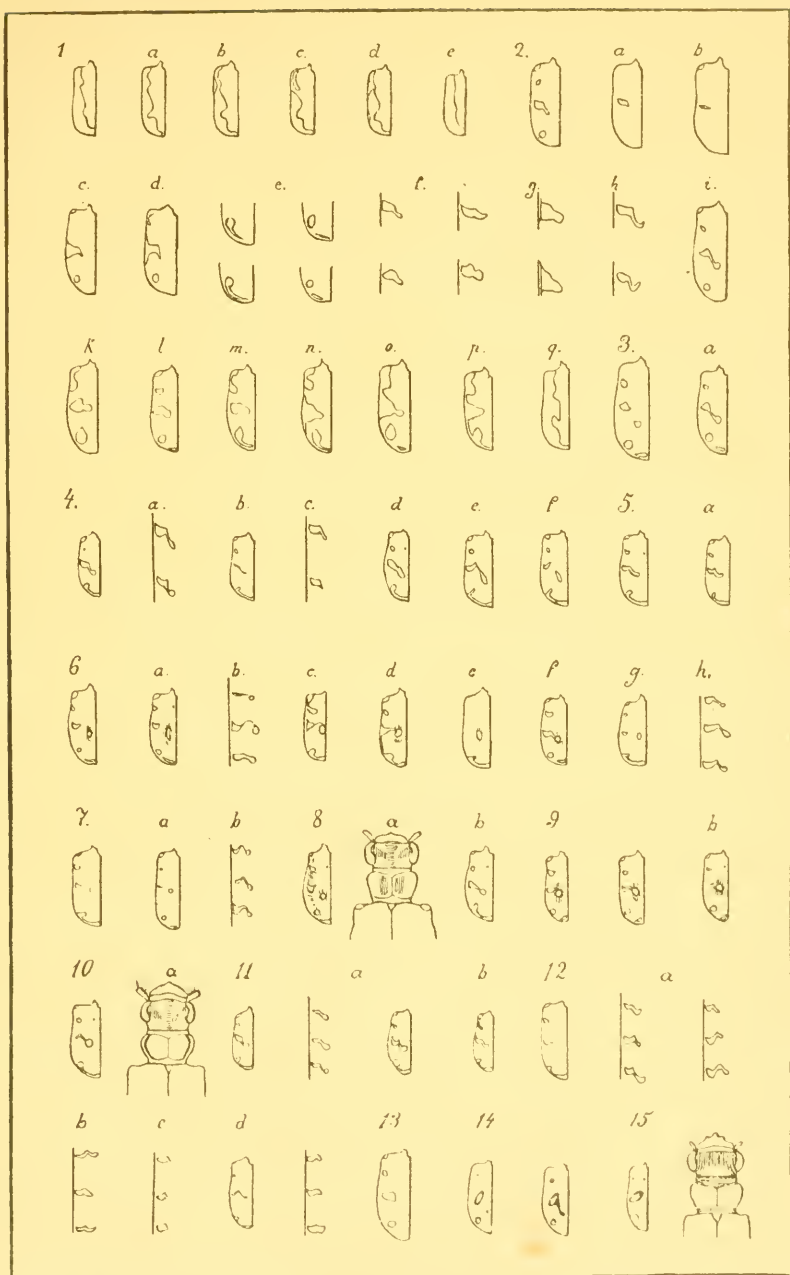 1 a b c. d e 2. a b
c. d. e. f. g. h i.
k l m. n. o. p. q. 3. a
4. a. b. c. d e. f 5. a
6 a. b. c. d e f g. h.
7. a b 8 a b 9 b
10 a 11 a b 12 a
b c d 13 14 15